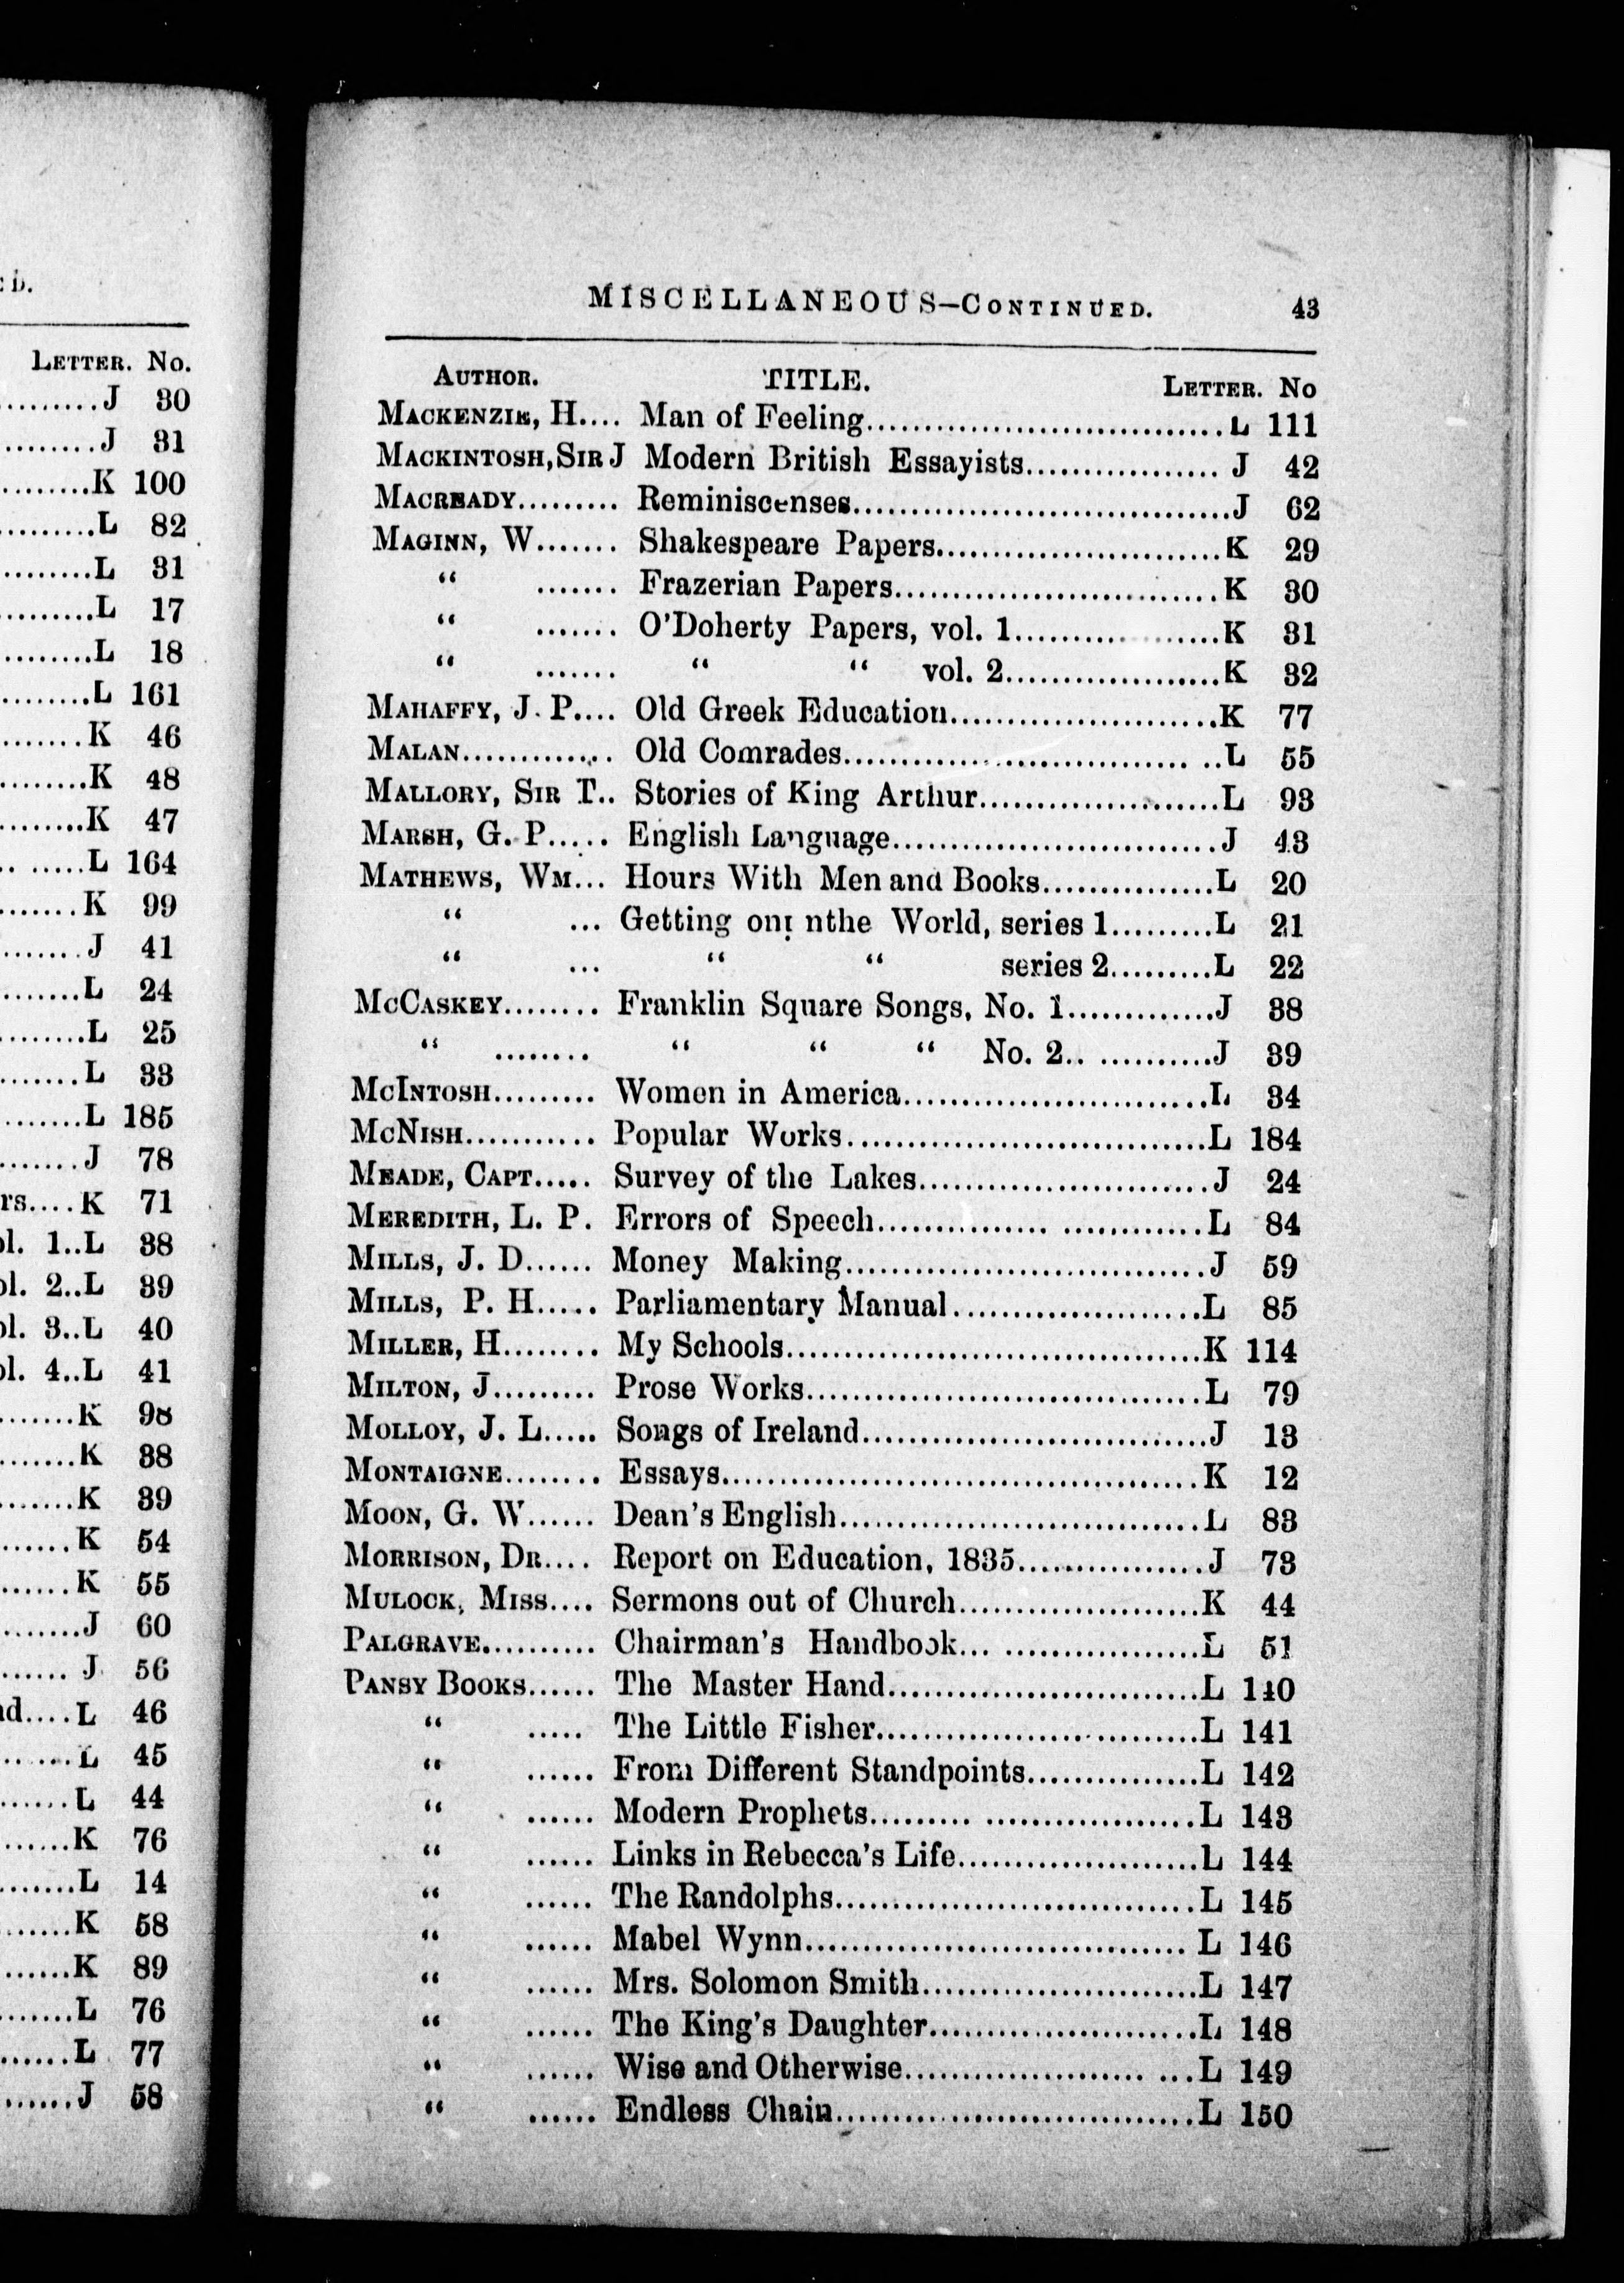 ED.
LETTER. No.
.........J 30
.........J 31
.........K 100
.........L 82
.........L 31
.........L 17
.........L 18
.........L 161
.......K 46
.........K 48
.........K 47
.. ......L 164
.......K 99
.......J 41
........L 24
.........L 25
........L 33
........L 185
.......J 78
rs....K 71
ol. 1..L 38
ol. 2..L 39
ol. 3..L 40
ol. 4..L 41
.......K 98
.......K 38
.......K 39
......K 54
......K 55
........J 60
...... J 56
nd....L 46
.......L 45
.......L 44
......K 76
........L 14
.......K 58
......K 89
.......L 76
......L 77
......J 58
MISCELLANEOUS—CONTINUED. 43
AUTHOR. TITLE. LETTER. No
MACKENZIE, H.... Man of Feeling..............................L 111
MACKINTOSH, SIR J Modern British Essayists................ J 42
MACREADY......... Reminiscenses................................J 62
MAGINN, W....... Shakespeare Papers........................K 29
“ ....... Frazerian Papers............................K 30
“ ....... O'Doherty Papers, vol. 1..................K 31
“ ....... “ “ vol. 2...................K 32
MAHAFFY, J. P.... Old Greek Education.......................K 77
MALAN............. Old Comrades.............................. ..L 55
MALLORY, SIR T.. Stories of King Arthur.....................L 93
MARSH, G. P..... English Language............................J 43
MATHEWS, WM... Hours With Men and Books...............L 20
“ ... Getting oni nthe World, series 1.........L 21
“ ... “ “ series 2.........L 22
MCCASKEY........ Franklin Square Songs, No. 1.............J 38
“ ........ “ “ “ No. 2.. ..........J 39
MCINTOSH......... Women in America..........................L 34
MCNISH........... Popular Works...............................L 184
MEADE, CAPT..... Survey of the Lakes.........................J 24
MEREDITH, L. P. Errors of Speech............... ............L 84
MILLS, J. D...... Money Making...............................J 59
MILLS, P. H..... Parliamentary Manual......................L 85
MILLER, H........ My Schools....................................K 114
MILTON, J......... Prose Works..................................L 79
MOLLOY, J. L..... Songs of Ireland..............................J 13
MONTAIGNE........ Essays.........................................K 12
MOON, G. W...... Dean's English...............................L 83
MORRISON, DR.... Report on Education, 1835................J 73
MULOCK, MISS.... Sermons out of Church.....................K 44
PALGRAVE.......... Chairman's Handbook... .................L 51
PANSY BOOKS...... The Master Hand...........................L 140
“ ..... The Little Fisher............................L 141
“ ...... From Different Standpoints...............L 142
“ ...... Modern Prophets......... ..................L 143
“ ...... Links in Rebecca's Life.....................L 144
“ ...... The Randolphs...............................L 145
“ ...... Mabel Wynn................................. L 146
“ ...... Mrs. Solomon Smith........................L 147
“ ...... The King's Daughter.......................L 148
“ ...... Wise and Otherwise..................... ...L 149
“ ...... Endless Chain...............................L 150